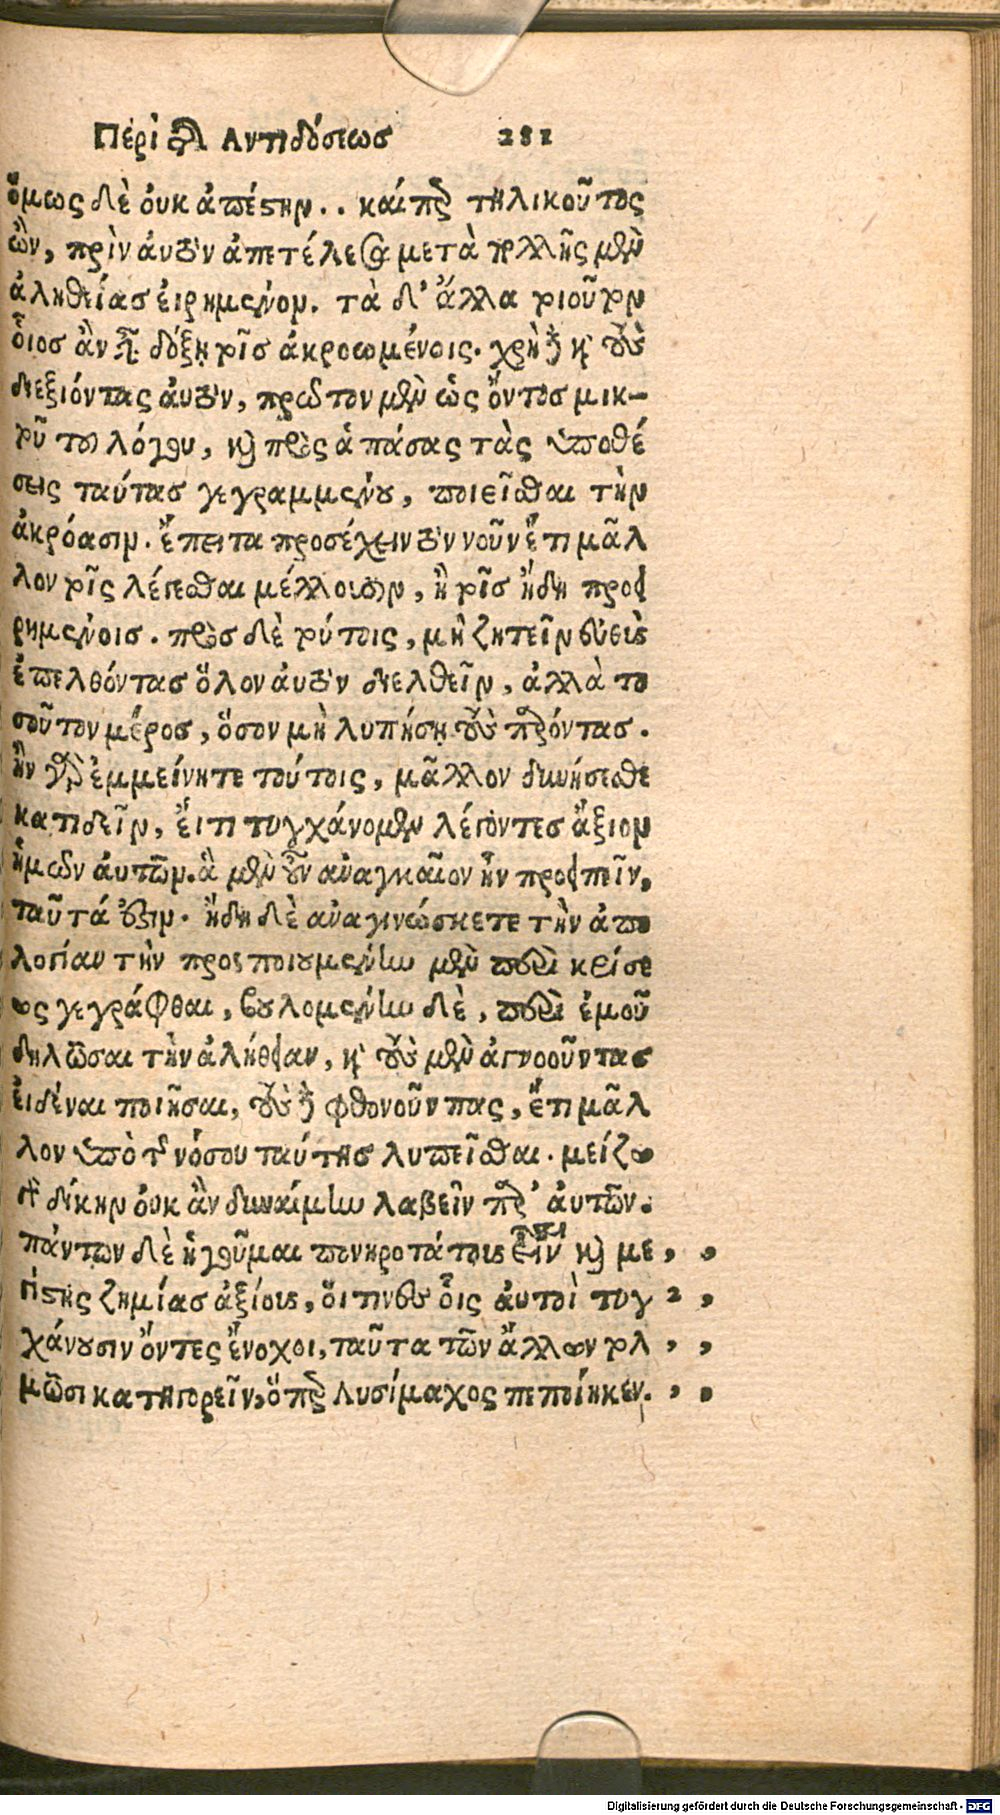 Περὶ τῆς Αντιδόσεως 281
ὅμως δὲ ὀυκ ἀπέστην.. καίπερ τηλικοῦτος
ὢν, πρὶν ἀυτὸν ἀπετέλεσα μετὰ πολλῆς μὲν
ἀληθείας ἐιρημένον. τὰ δ' ἄλλα τοιοῦτον
ὅιος ἂν δόξῃ τοῖς ἀκροωμένοις. χρὴ δὲ καὶ τοὺς
διεξιόντας ἀυτὸν, πρῶτον μὲν ὡς ὄντος μικ-
τοῦ τοῦ λόγου, καὶ πρὸς ἁπάσας τὰς ὑποθέ
σεις ταύτας γεγραμμένου, ποιεῖσθαι τὴν
ἀκρόασιν. ἔπειτα προσέχειν τὸν νοῦν ἔτι μᾶλ
λον τοῖς λέγεσθαι μέλλουσιν, ἢ τοῖς ἤδη προει
ρημένοις. πρὸς δὲ τούτοις, μὴ ζητεῖν εὐθὺς
ἐπελθόντας ὅλον ἀυτὸν διελθεῖν, ἀλλὰ το
σοῦτον μέρος, ὅσον μὴ λυπήσῃ τοὺς παρόντας.
ἢν γὰρ ἐμμείνητε τούτοις, μᾶλλον δυνήσεσθε
κατιδεῖν, ἔιτι τυγχάνομεν λέγοντες ἄξιον
ἡμῶν ἀυτῶν. ἃ μὲν οὖν ἀναγκαῖον ἦν προειπεῖν,
ταῦτά ἐστιν. ἤδη δὲ ἀναγινώσκετε τὴν ἀπο
λογίαν τὴν προσποιουμένην μὲν περὶ κρίσε
ως γεγράφθαι, βουλομένην δὲ, περὶ ἐμοῦ
δηλῶσαι τὴν ἀλήθειαν, καὶ τοὺς μὲν ἀγνοοῦντας
ἐιδέναι ποιῆσαι, τοὺς δὲ φθονοῦντας, ἔτι μᾶλ
λον ὑπὸ τῆς νόσου ταύτης λυπεῖσθαι. μείζω
γὰρ δίκην ὀυκ ἂν δυναίμην λαβεῖν παρ' ἀυτῶν.
πάντων δὲ ἡγοῦμαι πονηροτάτους εἶναι καὶ με , ,
γίστης ζημίας ἀξίους, ὅιτινες οἷς ἀυτοὶ τυγ 2 ,
χάνουσιν ὄντες ἔνοχοι, ταῦτα τῶν ἄλλων τολ , ,
μῶσι κατηγορεῖν, ὅπερ Λυσίμαχος πεποίηκεν. , ,
Digitalisierung gefördert durch die Deutsche Forschungsgemeinschaft - DFG